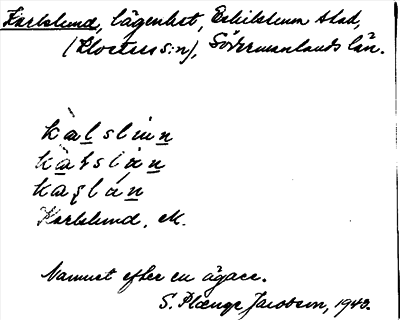 Karlslund, lägenhet, Eskilstuna stad,
(Klosters sn), Södermanlands län.
kàlslun
kàlslún
kaslún
Karlslund, M.
Namnet efter en ägare.
S. Plænge Jacobson, 1940.